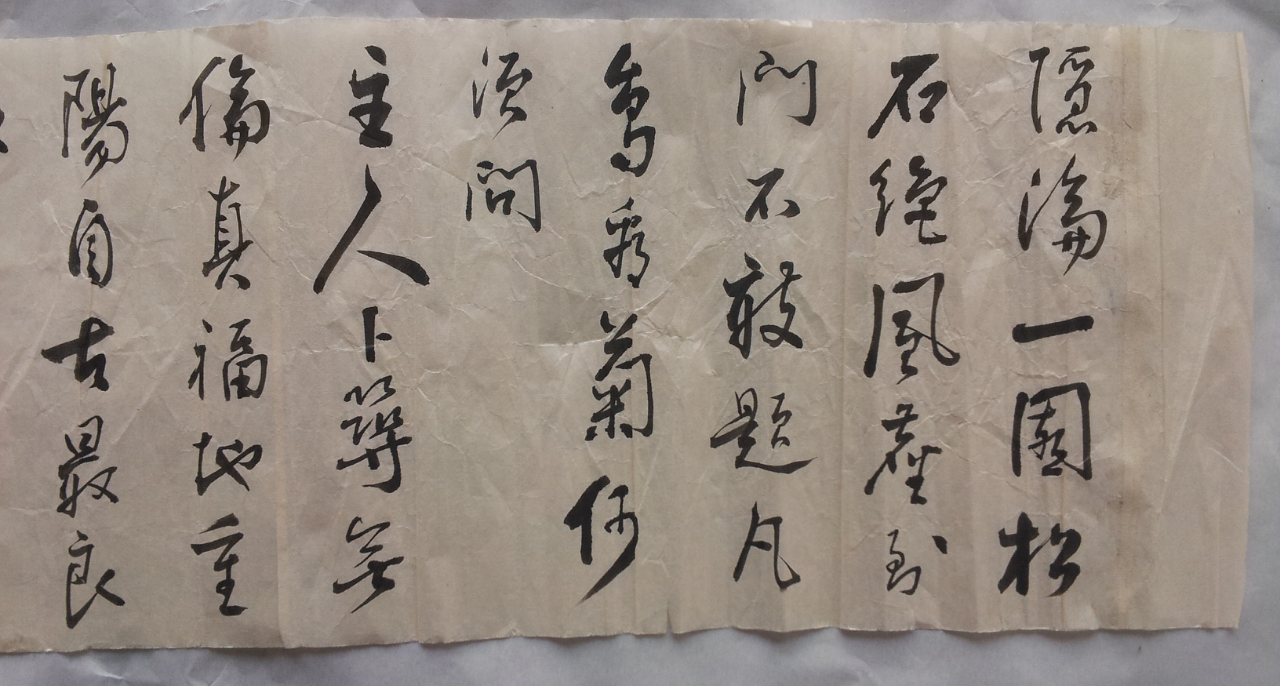 隱淪一園松
石絕風塵到
門不敢題凡
鳥看菊何
須問
主人卜築無
倫真福地重
陽自古最良